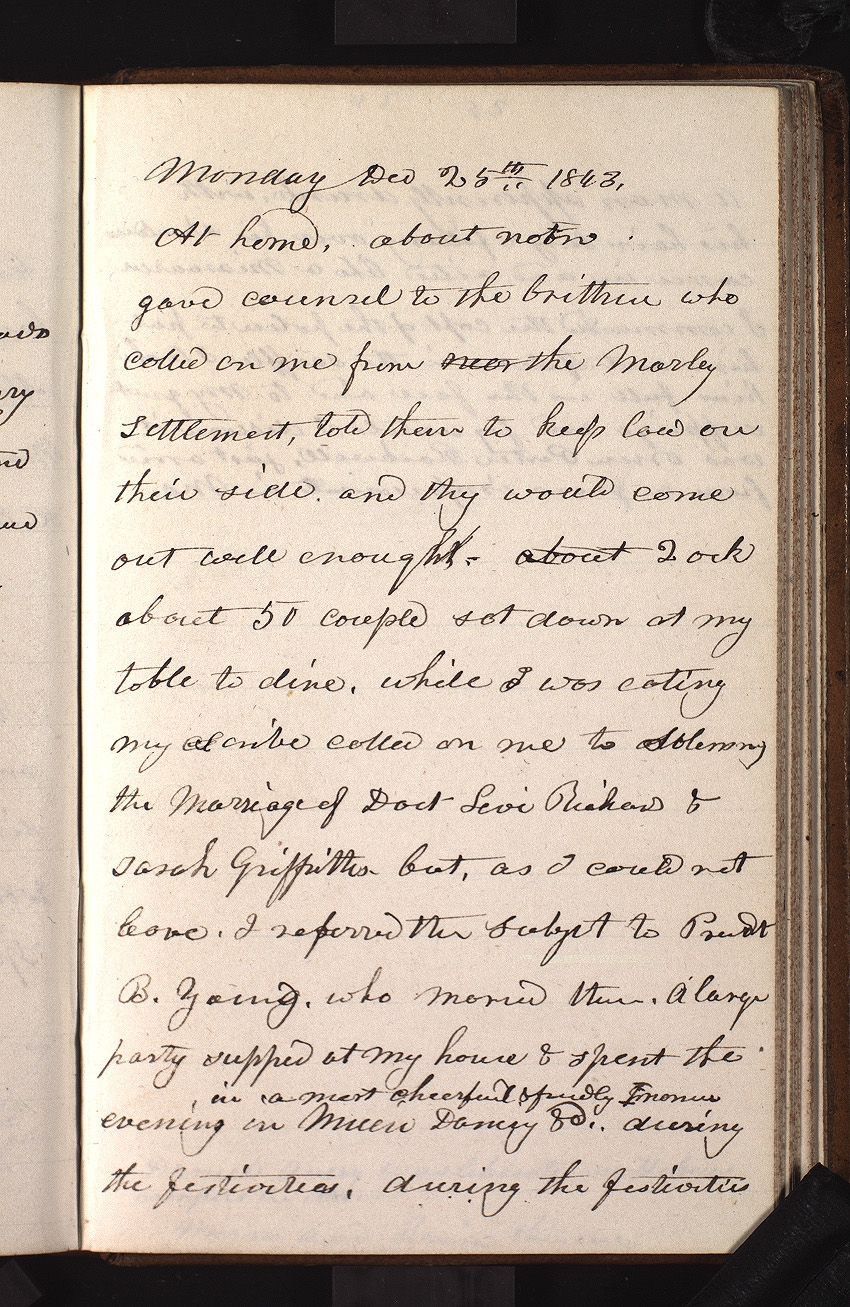 Monday Dec 25th 1843.
At home, about noon
gave counsel to the brithren who
called on me from near the Morley
Settlement, told them to keep law on
their side. and thy would come
out well enough - about 2 ock
about 50 couple sat down at my
table to dine. while I was eating
my scribe called on me to solemny
the Marriage of Doct Levi Richard &
Sarah Griffiths but, as I could not
leave. I referred the subject to Presdt
B. Young. who maried them. A large
party supped at my house & spent the
in a most cheerful & friendly manner
evening in Music Dancing &c. during
the festivities. during the festivities
ry